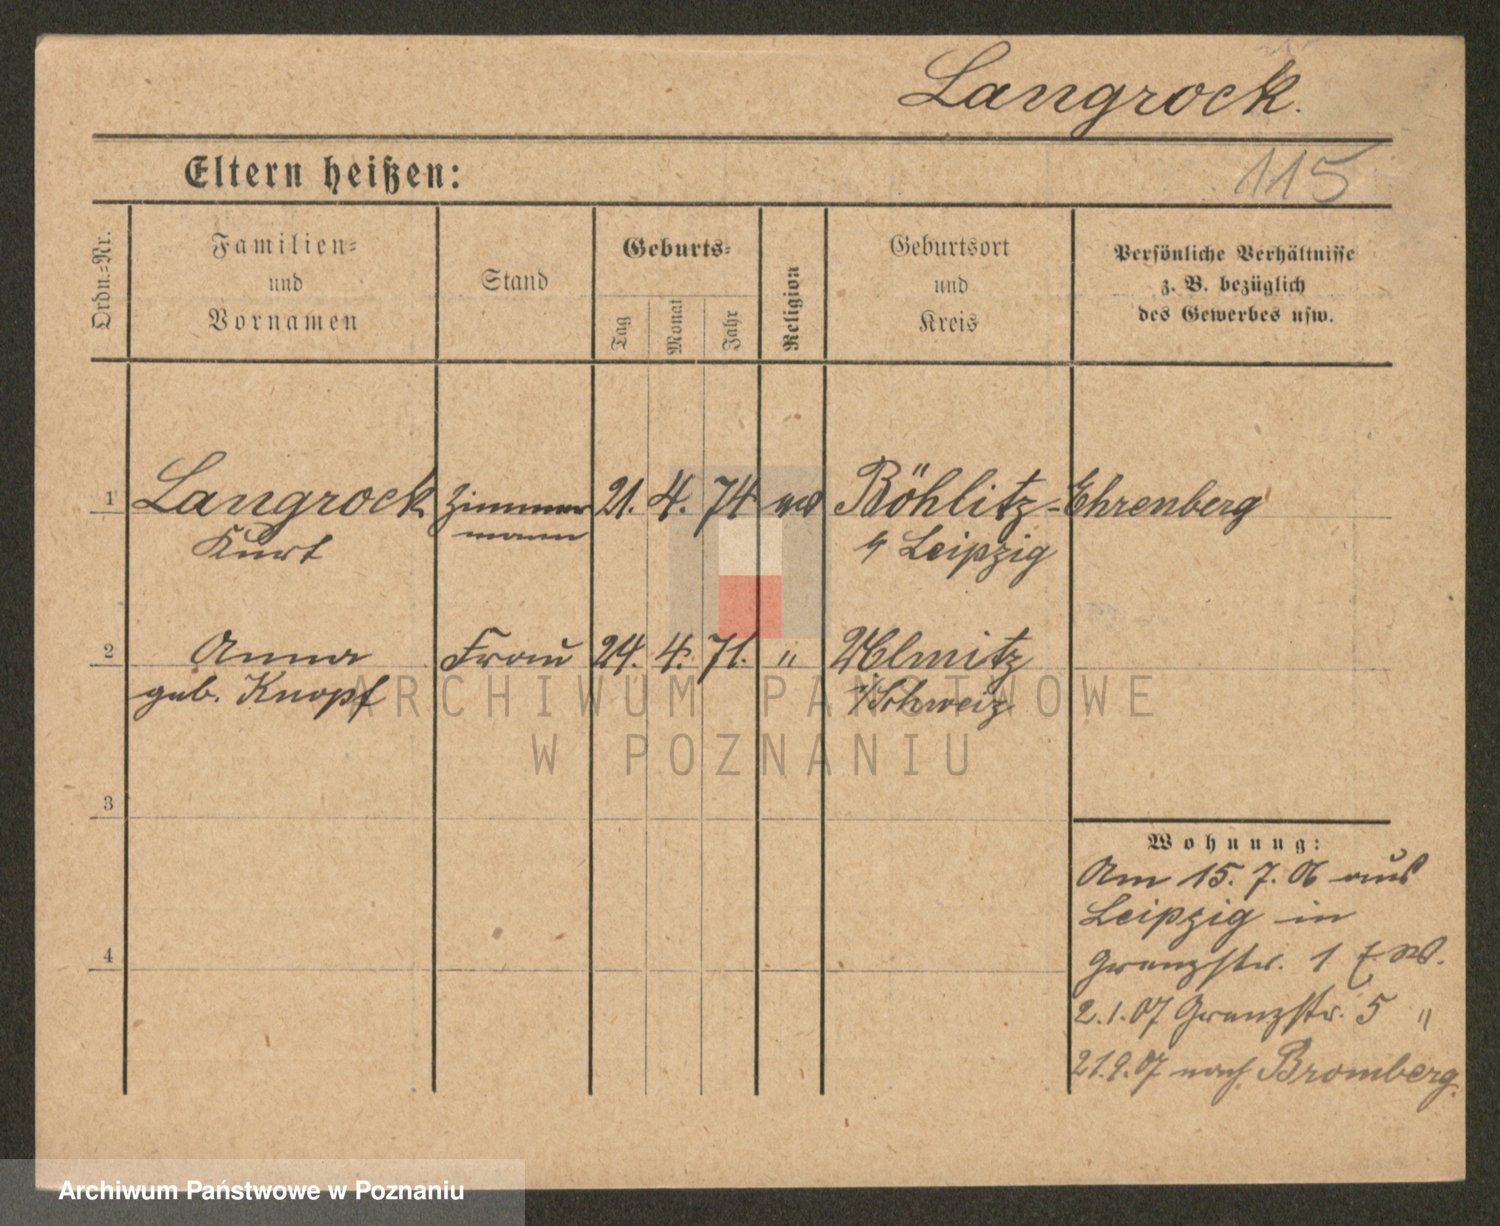 Langrock.
115
Eltern heißen:
Ordn.-Nr.
Familien-
und
Vornamen
Stand
Geburts-
Tag
Monat
Jahr
Religion
Geburtsort
und
Kreis
Persönliche Verhältnisse
z. B. bezüglich
des Gewerbes usw.
1 Langrock Zimmer 21. 4. 74 Böhlitz-Ehrenberg
Kurt mann Leipzig
2 Anna Frau 24. 4. 71. "
geb. Knopf i/Schweiz
ARCHIWUM PAŃSTWOWE
W POZNANIU
3
Wohnung:
Am 15. 7. 06 aus
Leipzig in
4
Grenzstr. 1
2.1.07 Grenzstr. 5 "
21.9.07 nach Bromberg.
Archiwum Państwowe w Poznaniu